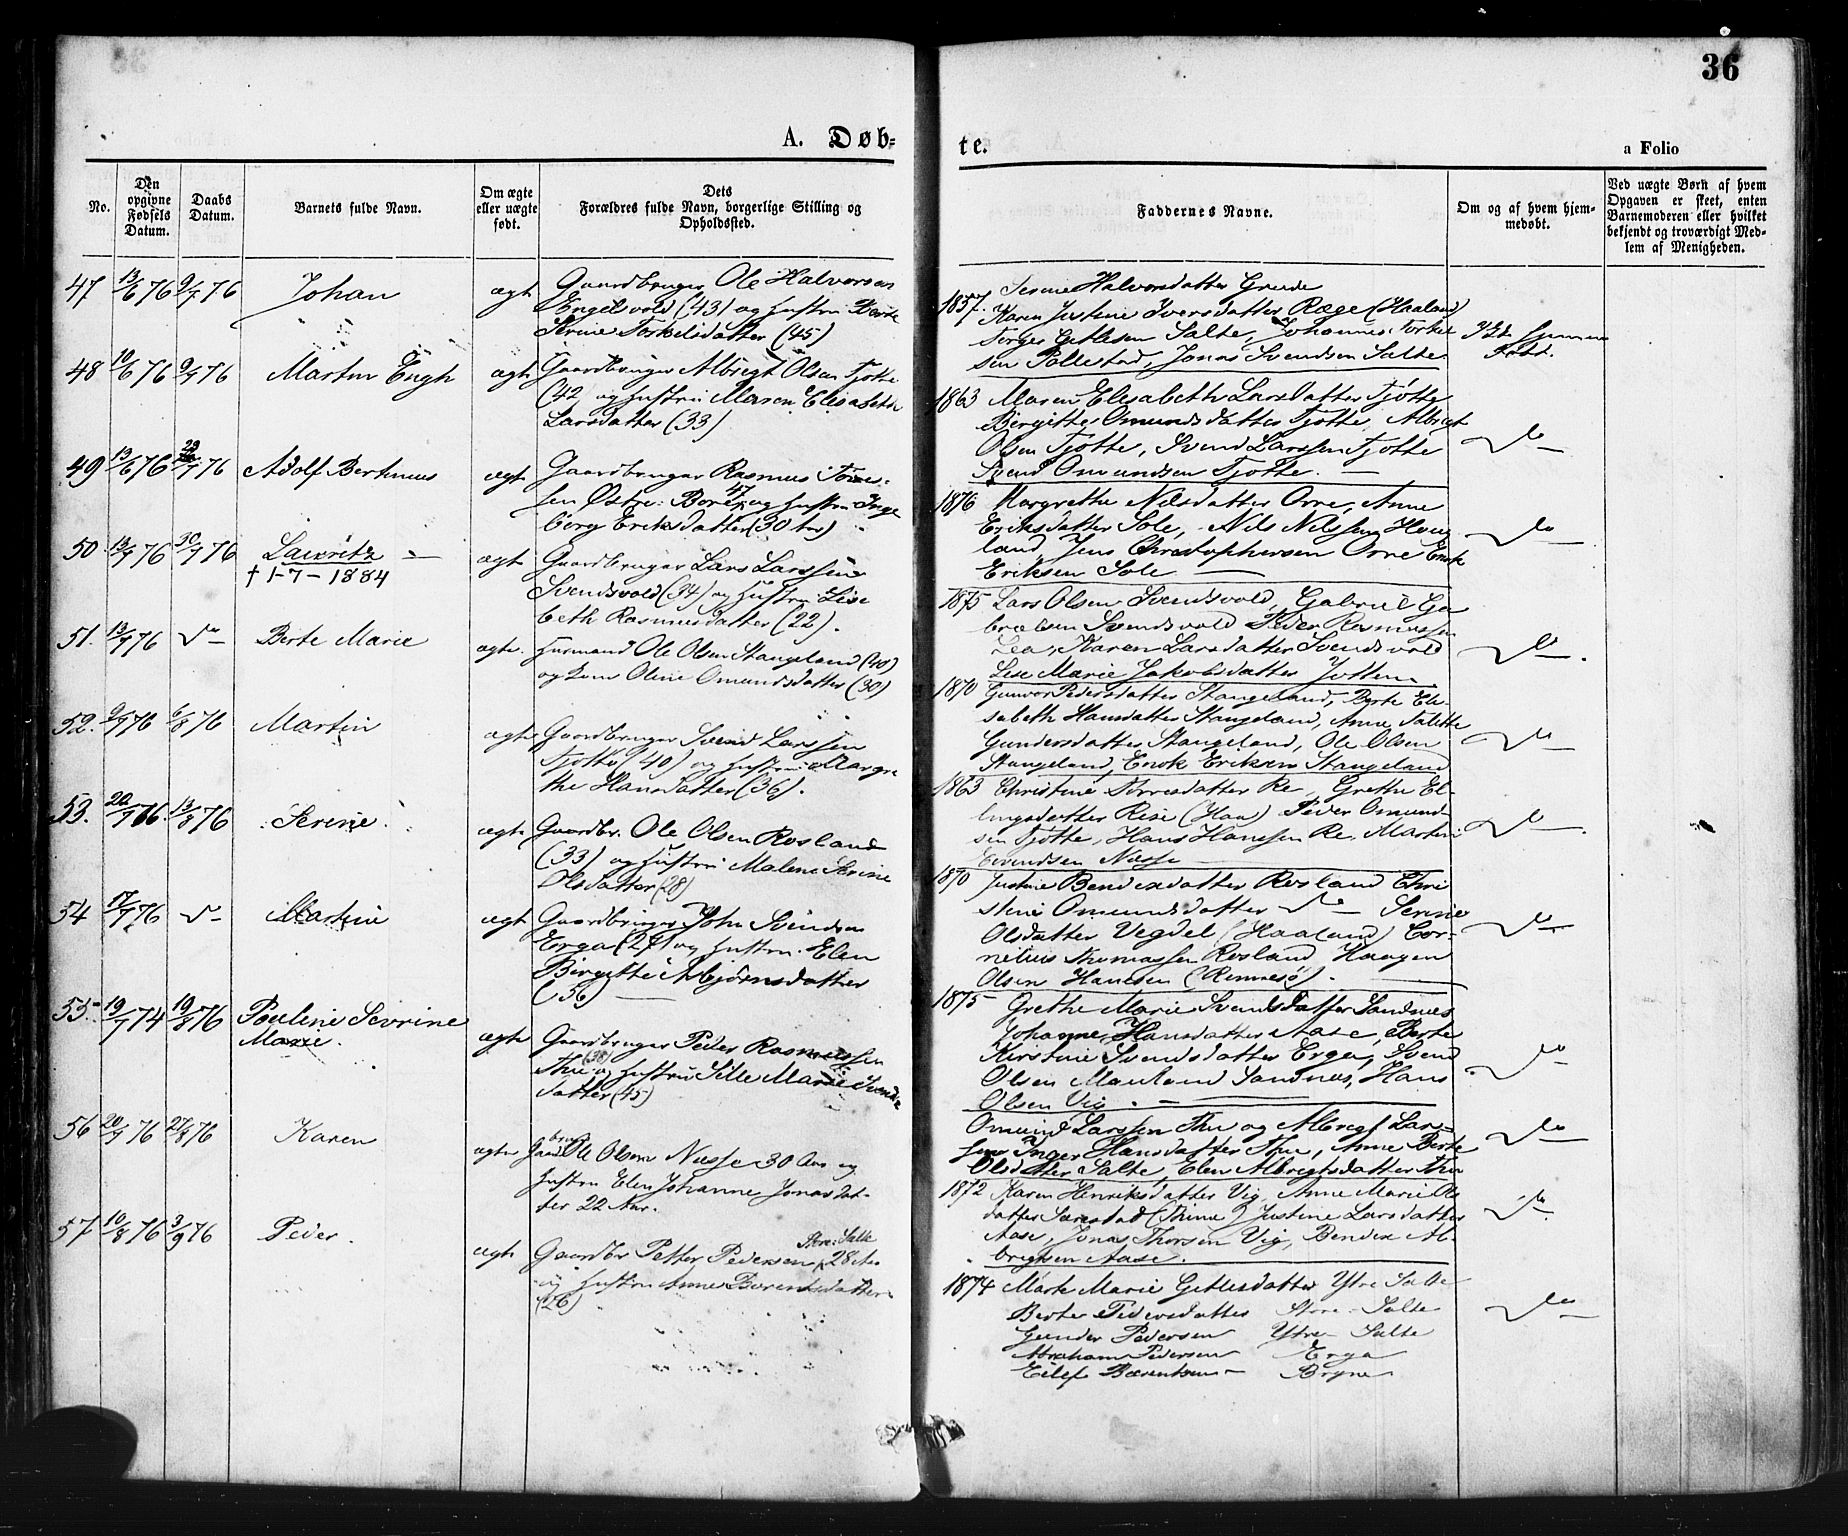 36
A. Døb-
te.
a Folio
No.
Den opgivne Fødsels Datum.
Daabs Datum.
Barnets fulde Navn.
Om ægte eller uægte født.
Dets
Forældres fulde Navn, borgerlige Stilling og
Opholdssted.
Faddernes Navne.
Om og af hvem hjem-
medøbt.
Ved uægte Børn af hvem
Opgaven er skeet, enten
Barnemoderen eller hvilket
bekjendt og troværdigt Med-
lem af Menigheden.
47 13/6 76 9/7 76 Johan ægt Gaardbruger Ole Halvorsen
Engelsvold (43) og Hustru Berte
Serine Torkelsdatter (45)
48 10/6 76 9/7 76 Martin Engh ægt Gaardbruger Albrigt Olsen Tjøtte
(42 og Hustru Maren Elisabeth
Larsdatter (33)
49 13/6 76 23/7 76 Adolf Bertinius ægt Gaardbruger Rasmus Tores-
sen Østre: Bore 47 og Hustru Inge
borg Eriksdatter (30 Aar)
50 13/7 76 30/7 76 Lauritz ægt Gaardbruger Lars Larssen
† 1-7-1884
Svendsvold (34) og Hustru Lise
beth Rasmusdatter (22).
51. 13/7 76 do Berte Marie ægte. Husmand Ole Olsen Stangeland (40)
og Kone Oline Omundsdatter (30)
52. 9/7 76 6/8 76 Martin ægte Gaardbruger Svend Larssen
Tjøtte (40) og Hustru Margre
the Hansdatter (36).
53. 20/7 76. 13/8 76 Serine. ægte Gaardbr. Ole Olsen Rosland
(33) og Hustru Malene Serine
Olsdatter (28)
54 17/7 76 do Martin ægt Gaardbruger John Svendsen
Erga (27) og Hustru Elen
Birgitte Asbjørnsdatter
(36)
55. 19/7 74 19/8 76 Pouline Sevrine
Marie. ægte Gaardbruger Peder Rasmussen
Thu (38) og Hustru Sille Marie Svends
datter (45)
56 20/7 76 27/8 76 Karen ægte Gaardbrug Ole Olsen Næsse 30 Aar og
Hustru Elen Johanne Jonasdat-
ter 22 Aar.
57. 10/8 76 3/9 76 Peder. ægte Gaardbr Petter Pedersen Store: Salte 28 Aar
og Hustru Anne Berentsdatter
(26)
1857. Serine Halvorsdatter Grude
Karen Justine Iversdatter Ræge (Haaland)
Torger Getlesen Salte, Johannes Torkel
sen Pollestad, Jonas Svendsen Salte
1863 Maren Elisabeth Larsdatter Tjøtte
Birgitte Omundsdatter Tjøtte, Albrigt
Olsen Tjøtte, Svend Larssen Tjøtte
Svend Omundsen Tjøtte.
do
1876 Margrethe Nilsdatter Orre, Anne
Eriksdatter Sole, Nils Nilssen Hau
land, Jens Christophersen Orre Enok
Eriksen Sole
do
1875 Lars Olsen Svendsvold, Gabriel Ga
brielsen Svendsvold Peder Rasmussen
Lea, Karen Larsdatter Svendsvold
Lise Marie Jakobsdatter Jotten
do
1870 Gunvor Pedersdatter Stangeland, Berte Eli-
sabeth Hansdatter Stangeland, Anne Talette
Gundersdatter Stangeland, Ole Olsen
Stangeland, Enok Eriksen Stangeland
do
1863 Christine Torresdatter Re, Grethe El-
lingsdatter Risé (Haa) Peder Omund
sen Tjøtte, Hans Hanssen Re, Martin
Svendsen Næsse
do
1870 Justine Bendixdatter Rosland Chri
stine Omundsdatter do Serine
Olsdatter Vegdel (Haaland) Cor-
nelius Thomassen Rosland, Haagen
Olsen Hanesen (Rennesø).
do
1875 Grethe Marie Svendsdatter Sandnes
Johanne Hansdatter Aase, Berte
Kirstine Svendsdatter Erga, Svend
Olsen Mauland Sandnes, Hans
Olsen Vig.
do
Omund Larssen Thu og Albregt Lars-
sen Inger Hansdatter Thu, Anne Berte
Olsdatter Salte, Elen Albregtsdatter Thu
do
1872 Karen Henriksdatter Vig, Anne Marie Ols
datter Særestad (Thime) Justine Larsdatter
Aase, Jonas Thorsen Vig, Bendix Al-
brigtsen Aase.
do
1874 Marte Marie Getlesdatter Ytre Salte
Berte Pedersdatter Store-Salte
Gunder Pedersen Ytre-Salte
Abraham Pedersen Erga
Eilef Berentsen Bryne
do